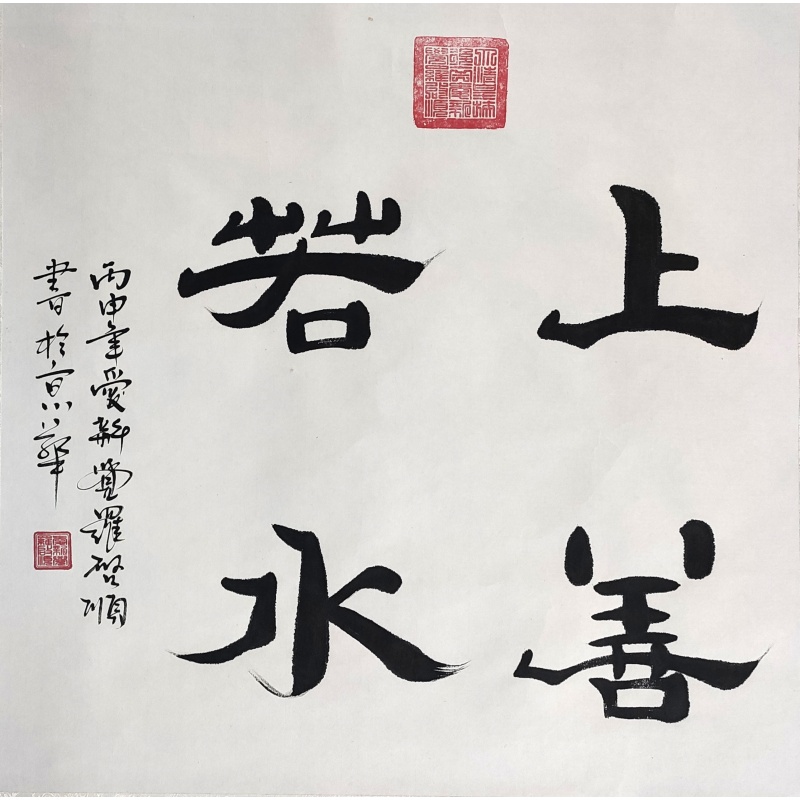 上善
若水
丙申年愛新覺羅啓順
書於京華